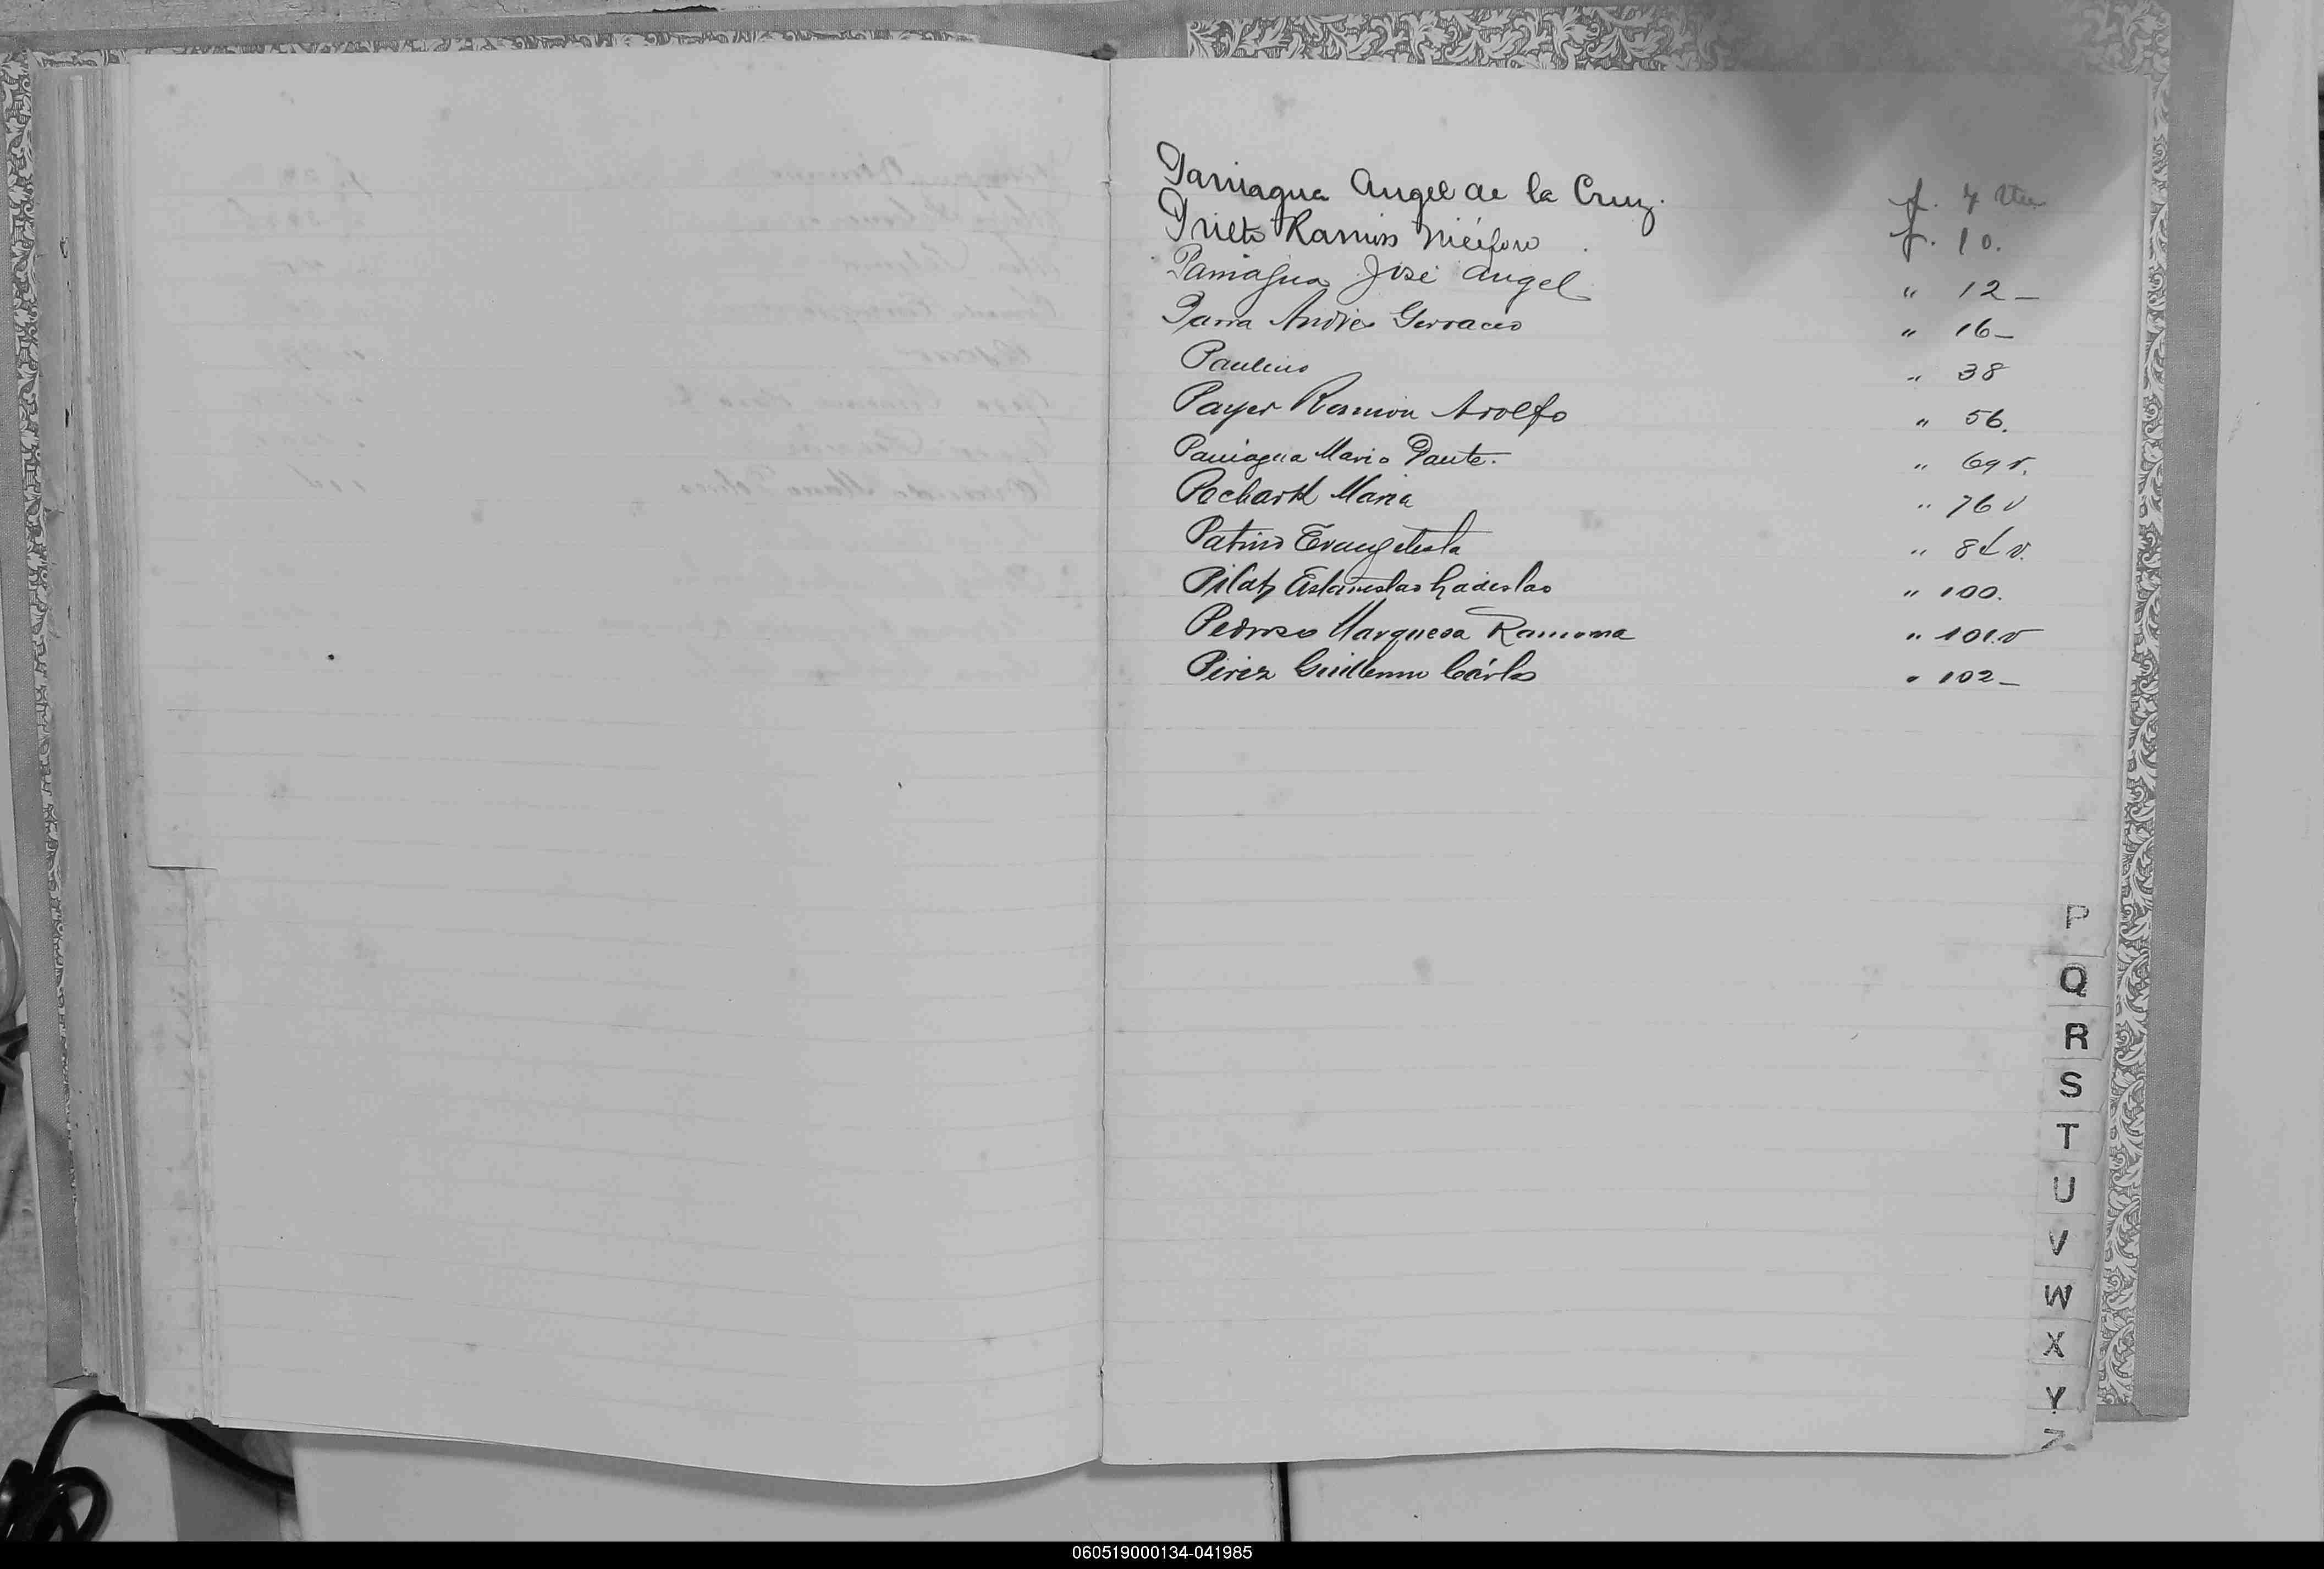 Paniagua Angel de la Cruz. f. 4 vta
Prieto Ramirs Nicéforo f. 10.
Paniagua José Angel " 12 –
Parra Andres Gervacio " 16 –
Paulino " 38
Payer Ramón Adolfo " 56.
Paniagua Mario Dante. " 69 v.
Pechartt Maria " 76 v
Patino Evangelista " 84 v.
Pilatz Estanislao Ladislao " 100.
Pedroso Marquesa Ramona " 101.v
Pérez Guillermo Cárlos " 102 –
P
Q
R
S
T
U
V
W
X
Y
Z
060519000134-041985